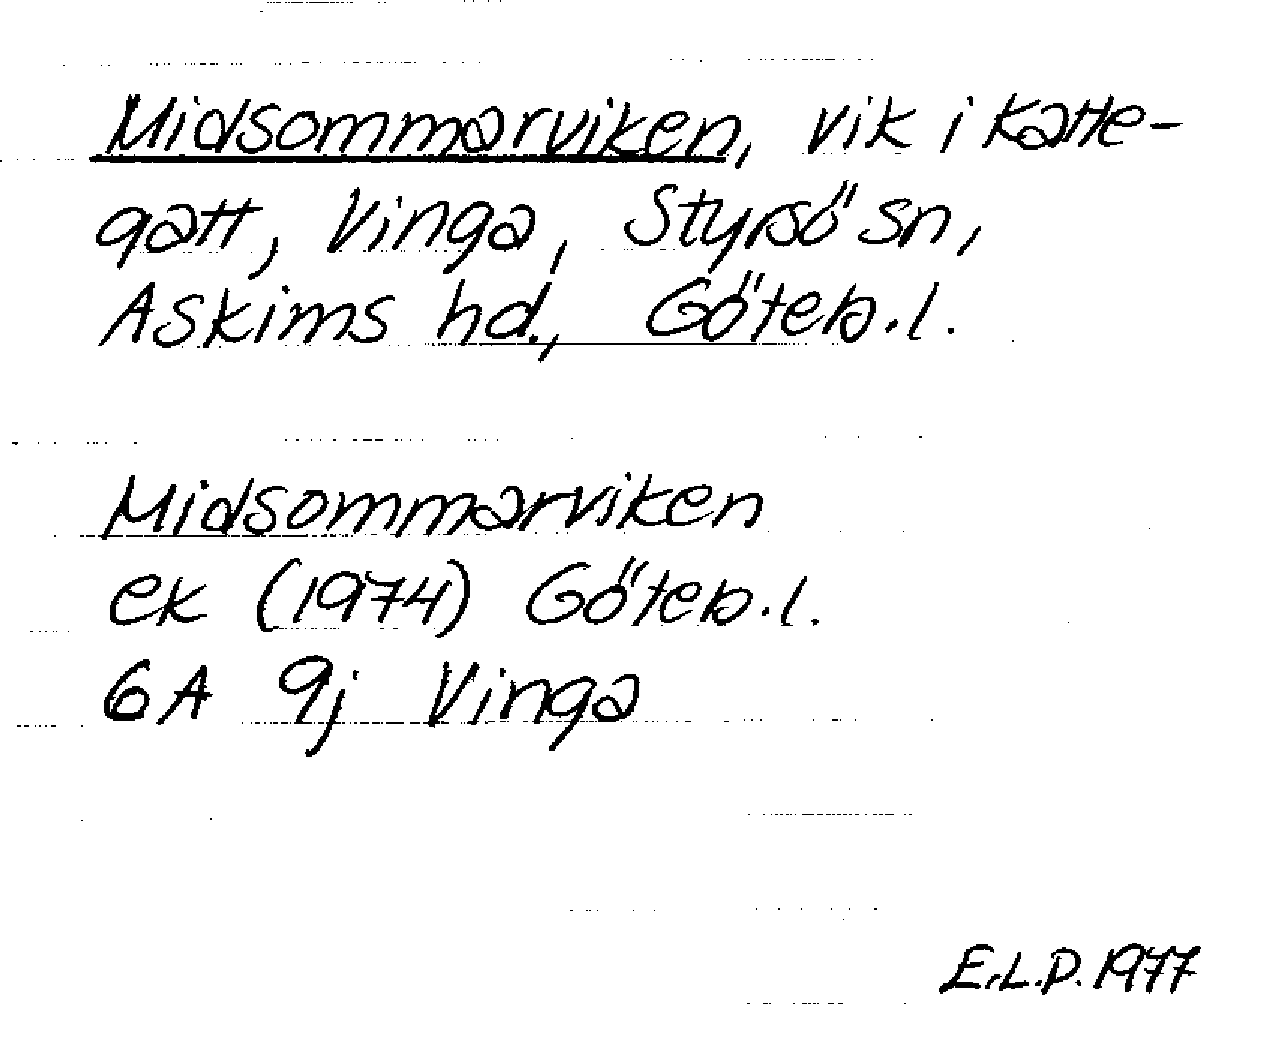 Midsommarviken, vik i Katte-
gatt, Vinga, Styrsö sn,
Askims hd., Göteb.l.
Midsommarviken
ek (1974) Göteb.l.
6A 9j Vinga
E.L.D. 1977